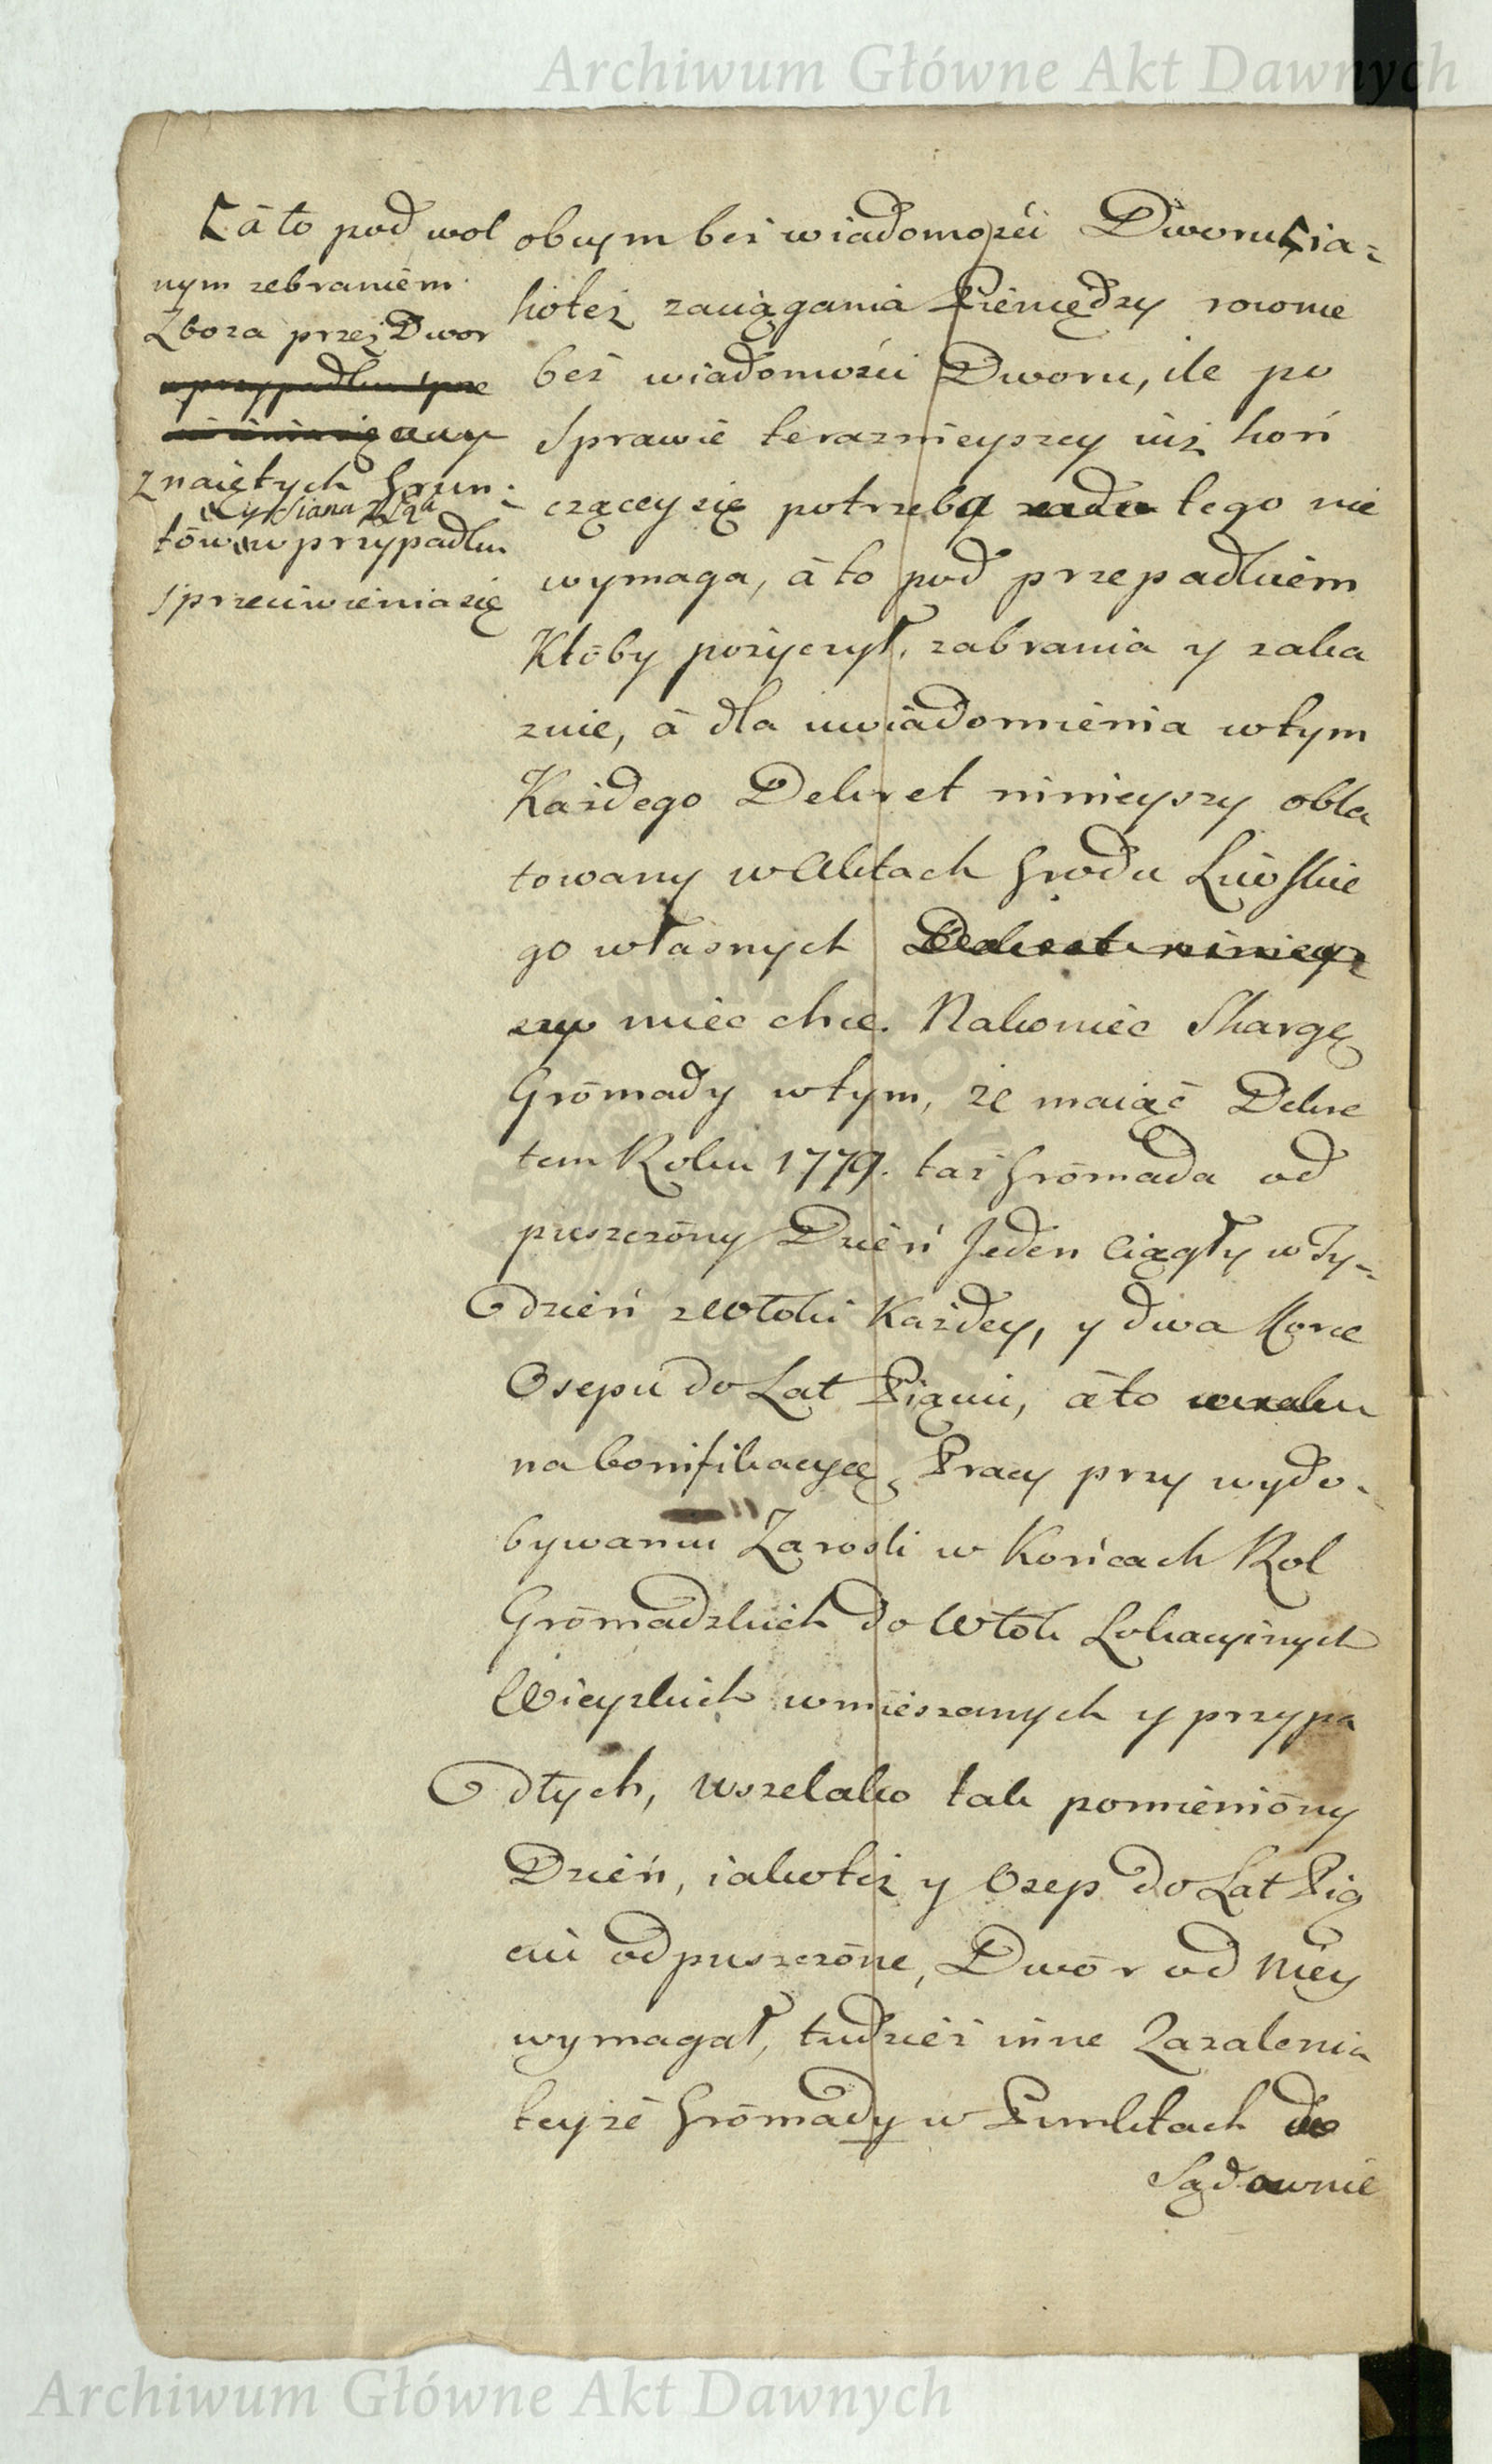 Archiwum Główne Akt Dawnych
[ à to pod wol
nym zebraniem
Zboza przez Dwor
w przypadku sprze
znaiętych Grun-
y Siana
tōw w przypadku
sprzeciwienia się
obcym bez wiadomości Dworu [ ia=
kotez zaciągania Pieniędzy rownie
bez wiadomości Dworu, ile po
Sprawie terazniejszey iuż koń
czącey się potrzeba tego nie
wymaga, à to pod przepadkiem
Ktōby pożyczył, zabrania y zaka
zuie, à dla uwiadomienia w tym
Każdego Dekret ninieyszy obla
towany w Aktach Grodu Liwskie
go własnych Dekret ninieys
szy miec chce. Nakoniec Skargę
Grōmady w tym, że maiąc Dekre
tem Roku 1779. taż Grōmada od
puszczōny Dzień Jeden Ciągły w Ty=
dzień z Włoki Każdey, y dwa Korce
Osepu do Lat Pięciu, à to
na bonifikacyę Pracy przy wydo-
bywaniu Zarosli w Końcach Rol
Grōmadzkich do Włok Lokacyinych
Wieyskich wmieszanych y przypa
dłych, wszelako tak pomieniōny
Dzień, iakotez y Osep do Lat Pię
ciu odpuszczōne, Dwōr od Niey
wymagał, tudzież inne Zazalenia
teyże Grōmady w Punktach do
Sądownie
Archiwum Główne Akt Dawnych